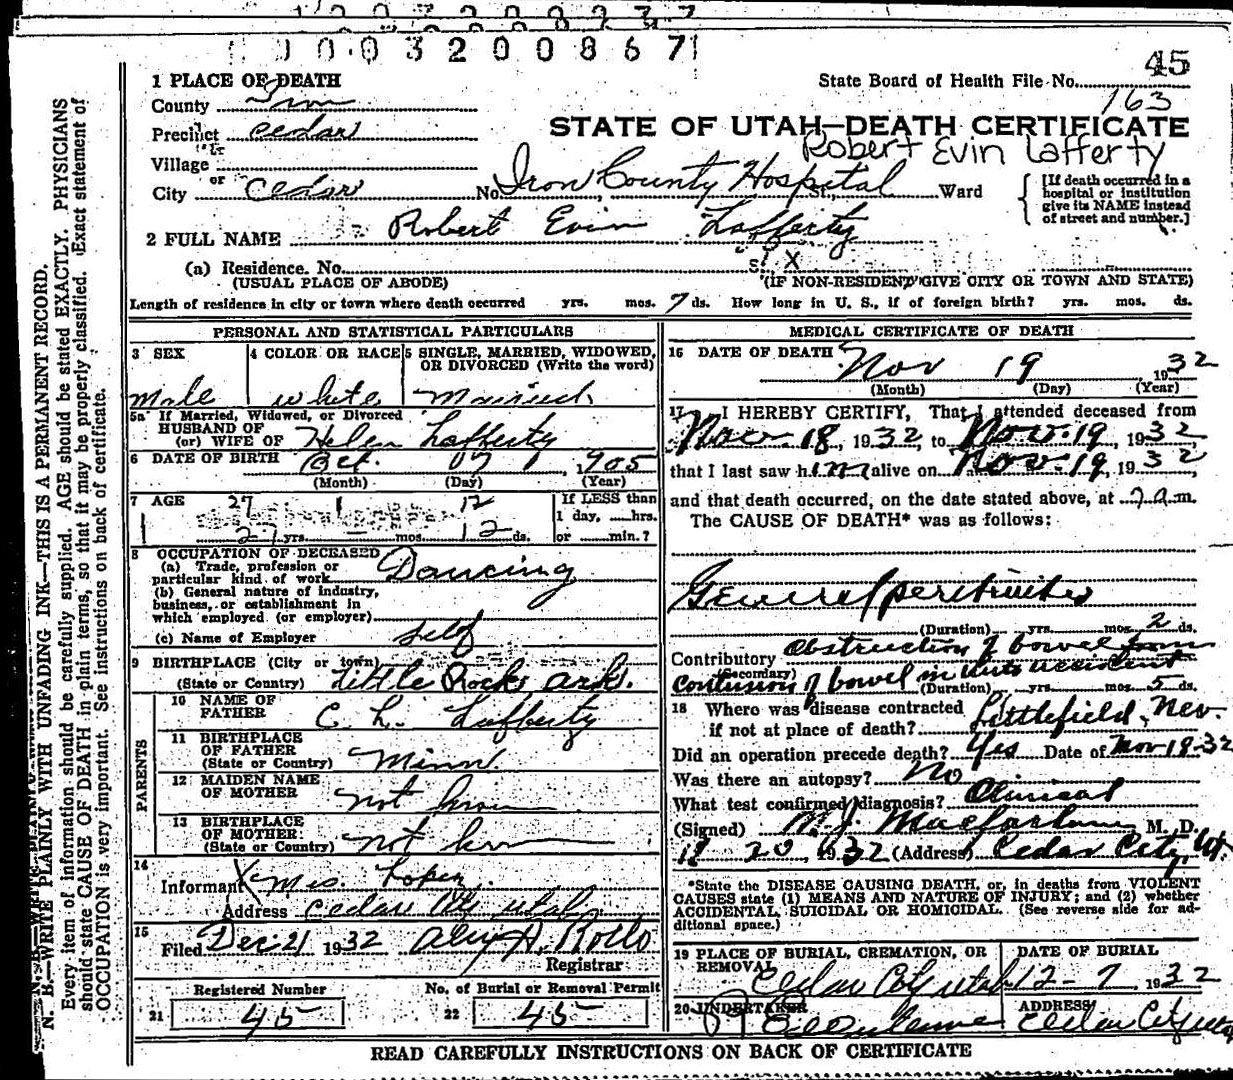 1003200867
45
1 PLACE OF DEATH
State Board of Health File No.
163
County Iron
Precinct Cedar
STATE OF UTAH—DEATH CERTIFICATE
Robert Evin Lafferty
Village
or
City Cedar No. Iron County Hospital St., Ward
[If death occurred in a hospital or institution give its NAME instead of street and number.]
2 FULL NAME Robert Evin Lafferty
(a) Residence. No. St. X
(USUAL PLACE OF ABODE) (IF NON-RESIDENT GIVE CITY OR TOWN AND STATE)
Length of residence in city or town where death occurred yrs. mos. 7 ds. How long in U. S., if of foreign birth? yrs. mos. ds.
PERSONAL AND STATISTICAL PARTICULARS
3 SEX 4 COLOR OR RACE 5 SINGLE, MARRIED, WIDOWED, OR DIVORCED (Write the word)
Male white Married
5a If Married, Widowed, or Divorced
HUSBAND OF
(or) WIFE OF Helen Lafferty
6 DATE OF BIRTH Oct. 07, 1905
(Month) (Day) (Year)
7 AGE 27 1 12
If LESS than
1 day, hrs.
27 yrs. – mos. 12 ds. or min.?
8 OCCUPATION OF DECEASED
(a) Trade, profession or
particular kind of work Dancing
(b) General nature of industry,
business, or establishment in
which employed (or employer)
(c) Name of Employer self
9 BIRTHPLACE (City or town)
(State or Country) Little Rock, Ark.
PARENTS
10 NAME OF
FATHER C. L. Lafferty
11 BIRTHPLACE
OF FATHER
(State or Country) Minn
12 MAIDEN NAME
OF MOTHER not known
13 BIRTHPLACE
OF MOTHER:
(State or Country) not known
14
Informant X Mrs. Lopez.
Address Cedar City Utah
15
Filed Dec. 21 1932
Registrar
Registered Number
21 45
No. of Burial or Removal Permit
22 45
MEDICAL CERTIFICATE OF DEATH
16 DATE OF DEATH Nov 19 1932
(Month) (Day) (Year)
17 I HEREBY CERTIFY, That I attended deceased from
Nov. 18, 1932 to Nov. 19, 1932
that I last saw him alive on Nov. 19, 1932
and that death occurred, on the date stated above, at 7 a m.
The CAUSE OF DEATH* was as follows:
General peritonitis
(Duration) yrs. mos. 2 ds.
Contributory Obstruction of bowel from
(Secondary)
contusion of bowel in auto accident
(Duration) yrs. mos. 5 ds.
18 Where was disease contracted
if not at place of death? Littlefield, Nev.
Did an operation precede death? Yes Date of Nov 18-32
Was there an autopsy? No
What test confirmed diagnosis? Clinical
(Signed) M. J. Macfarlane M. D.
11 20 1932 (Address) Cedar City, Ut.
*State the DISEASE CAUSING DEATH, or, in deaths from VIOLENT
CAUSES state (1) MEANS AND NATURE OF INJURY; and (2) whether
ACCIDENTAL, SUICIDAL OR HOMICIDAL. (See reverse side for ad-
ditional space.)
19 PLACE OF BURIAL, CREMATION, OR
REMOVAL
Cedar City Utah
DATE OF BURIAL
12 - 7, 1932
20 UNDERTAKER
ADDRESS
Cedar City Utah
READ CAREFULLY INSTRUCTIONS ON BACK OF CERTIFICATE
N. B.—WRITE PLAINLY WITH UNFADING INK—THIS IS A PERMANENT RECORD.
Every item of information should be carefully supplied. AGE should be stated EXACTLY. PHYSICIANS
should state CAUSE OF DEATH in plain terms, so that it may be properly classified. Exact statement of
OCCUPATION is very important. See instructions on back of certificate.